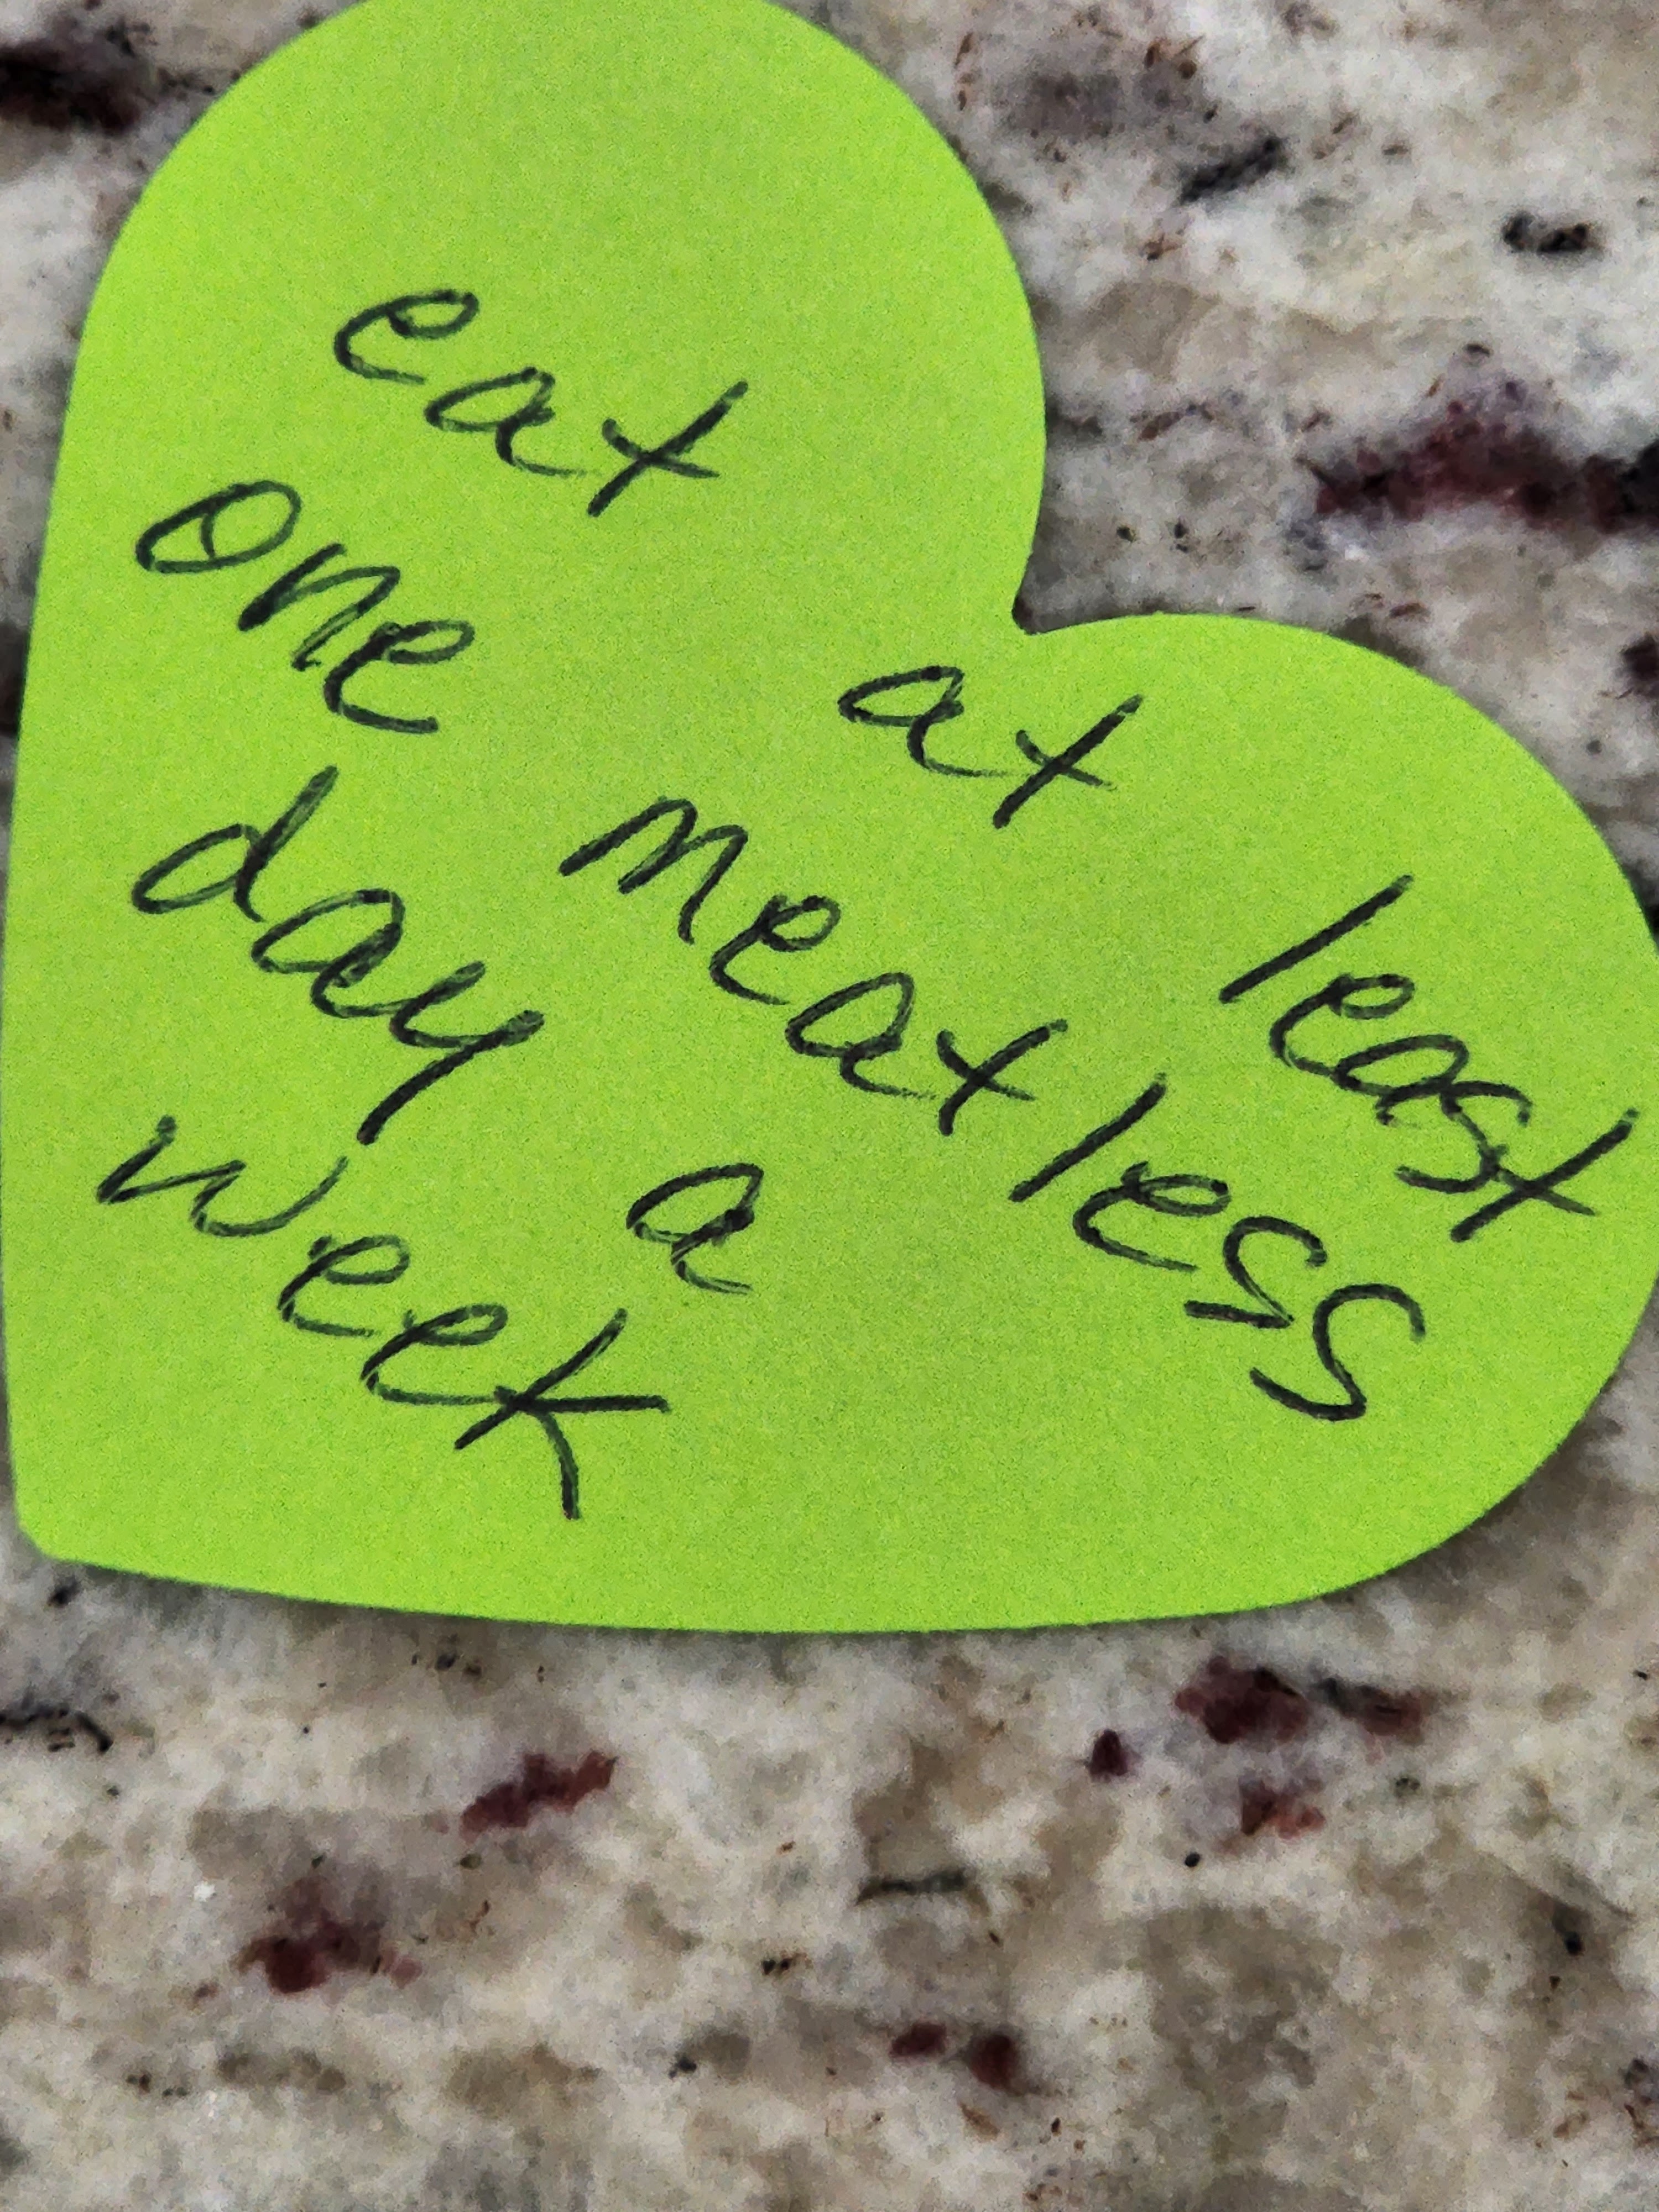 eat at least
one meatless
day a
week